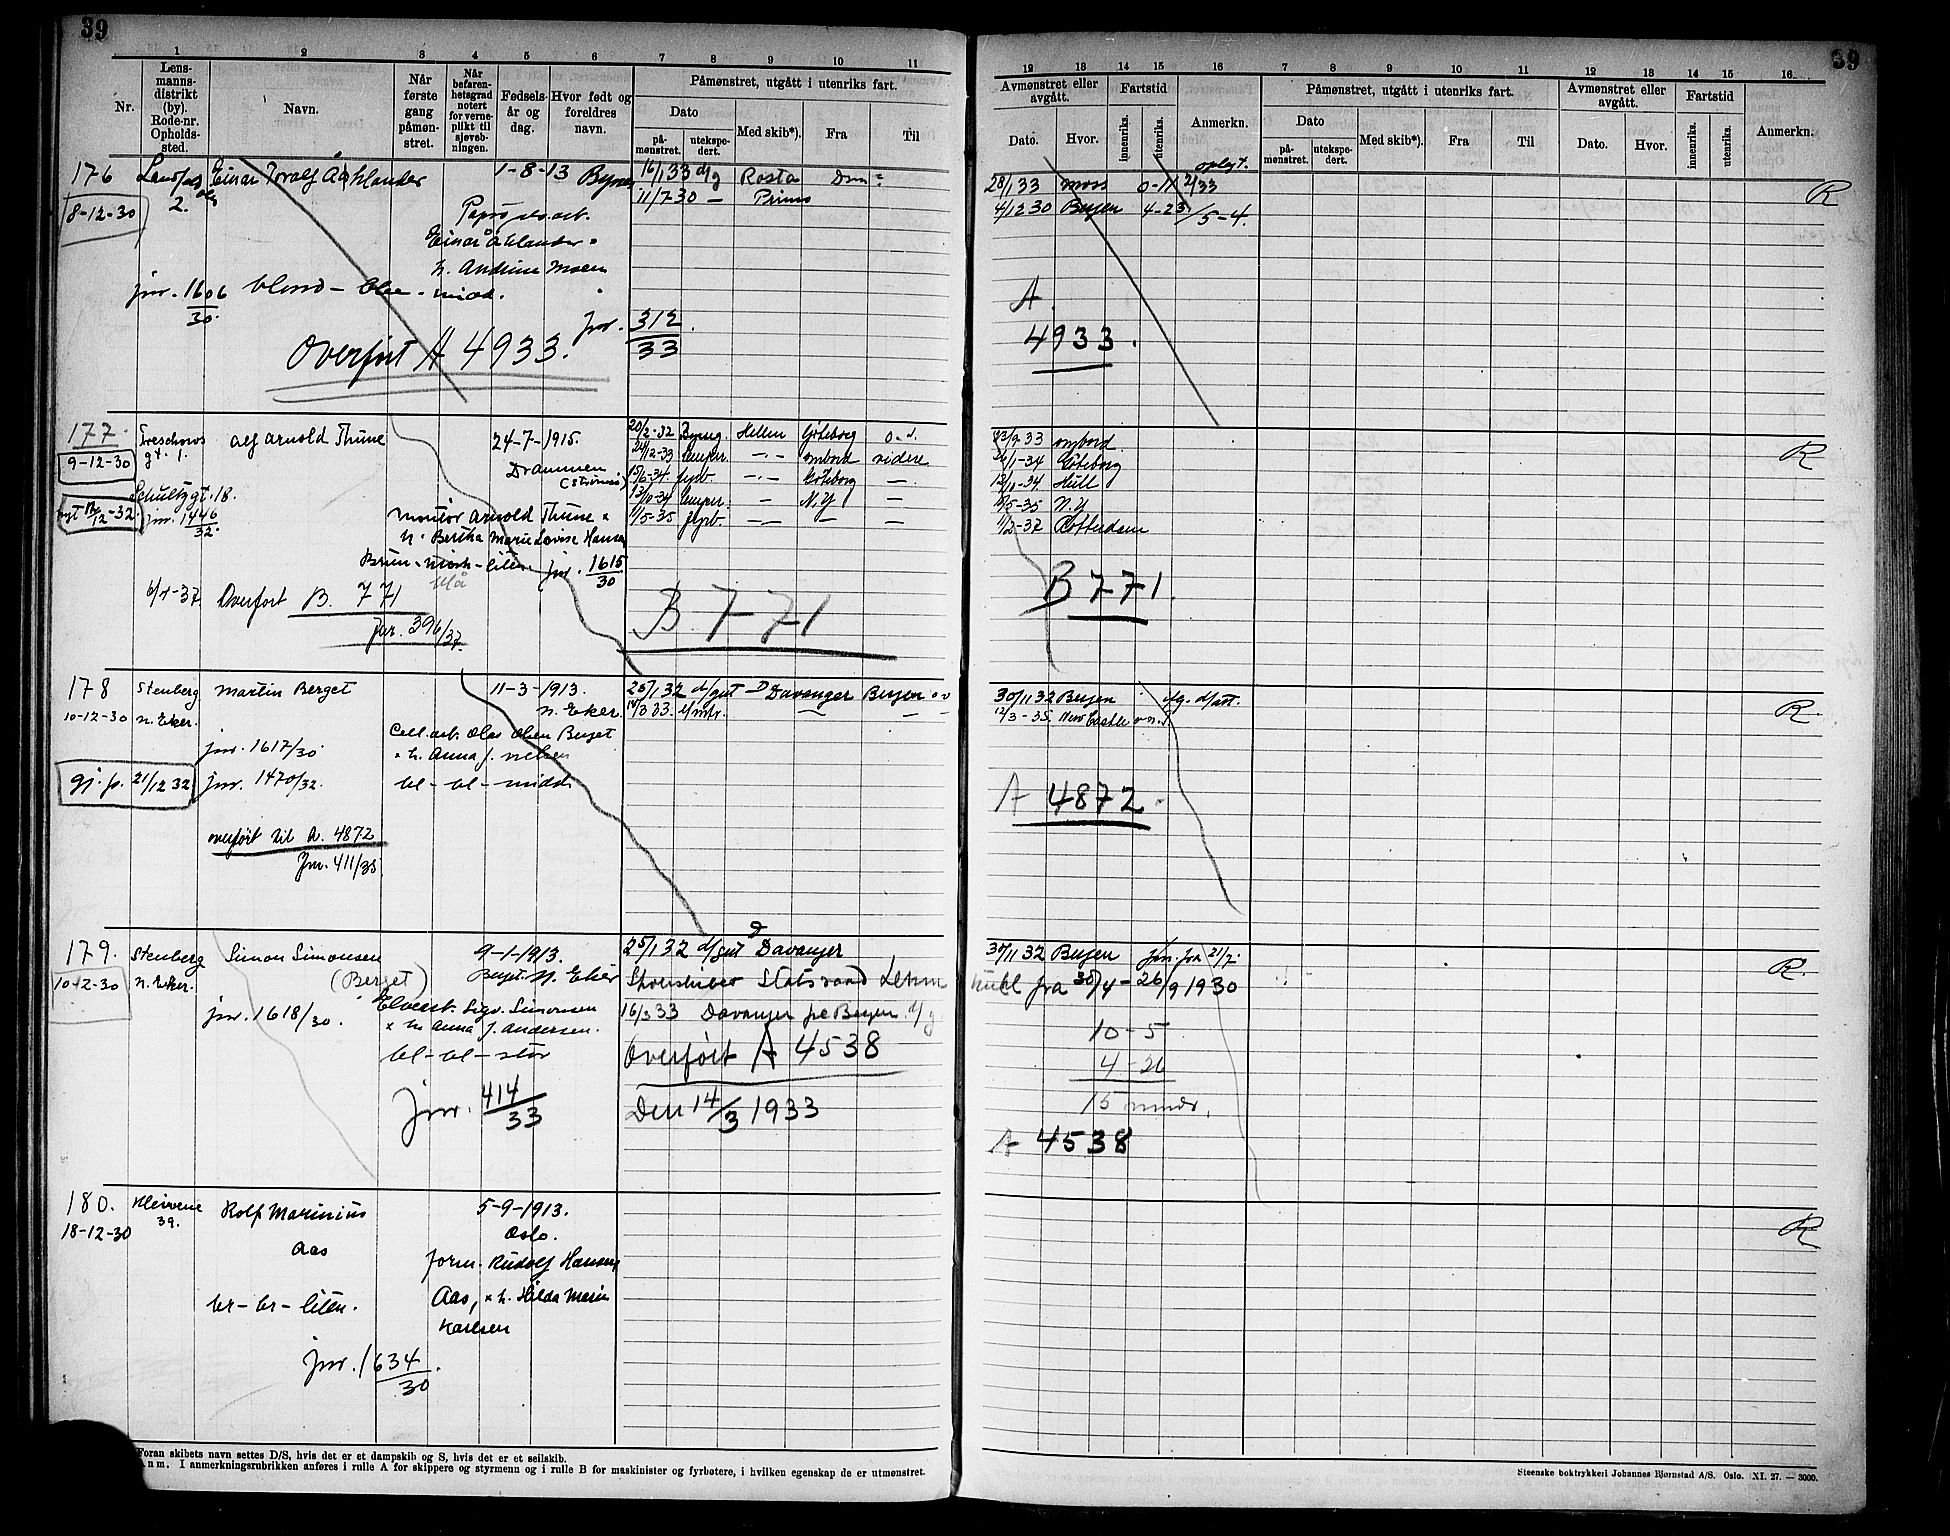 39
39
1 2 3 4 5 6 7 8 9 10 11
12 13 14 15 16 7 8 9 10 11 12 13 14 15 16
Nr.
Lens-
manns-
distrikt
(by).
Rode-nr.
Opholds-
sted.
Navn.
Når
første
gang
påmøn-
stret.
Når
befaren-
hetsgrad
notert
for verne-
plikt til
sjøveb-
ningen.
Fødsels-
år og
dag.
Hvor født og
foreldres
navn.
Påmønstret, utgått i utenriks fart.
Dato
på-
mønstret.
utekspe-
dert.
Med skib*).
Fra
Til
Avmønstret eller
avgått.
Dato.
Hvor.
Fartstid
innenriks.
utenriks.
Anmerkn.
Påmønstret, utgått i utenriks fart.
Dato
på-
mønstret.
utekspe-
dert.
Med skib*).
Fra
Til
Avmønstret eller
avgått.
Dato.
Hvor.
Fartstid
innenriks.
utenriks.
Anmerkn.
176
8-12-30
2.
Einar Toralf Åhlander
1-8-13
16/1 33 d/g Rosta
11/7-30 — Primo
Einar Åhlander
h. Andrine Moen
jnr. 1606
30
blond - blå - midd.
jnr. 312
33
Overført A 4933.
oplagt. 2/33
28/1 33 Moss 0-11
4/12 30 Bergen 4-23 /5-4.
R
A
4933.
177.
9-12-30
Treschows
gt. 1.
Schultzgt. 18.
12-32
jnr. 1446
32
Alf Arnold Thune
24-7-1915.
Drammen
(Strømsø)
montør Arnold Thune
h. Bertha Marie Lovise Hansen
Brun - mørk - liten
blå
jnr. 1615
30
Overført B. 771
jnr. 396/37.
20/2-32 Hellen Göteborg
ombord videre
Göteborg —
N.Y —
1/5-35
B. 771
9 33 ombord
1-34 Göteborg
10-34 Hull
5-35 N.Y
1/2-37 Rotterdam
R
B 771.
178
10-12-30
Stenberg
n. Eker.
Martin Berget
11-3-1913.
n. Eker.
Cell.arb. Olav Olsen Berget
h. Anna J. Nelsen
bl - bl - midd
jnr. 1617/30
gj. p. 21/12 32
jnr. 1470/32.
overført til A. 4872
Jnr. 411/35
25/1 32 d/gut D Davanger Bergen
30/11 32 Bergen
12/3-35. New Castle
R.
A 4872.
179.
10-12-30
Stenberg
n. Eker.
Simon Simonsen
(Berget)
9-1-1913.
Berget N. Eker
Sigv. Simonsen
h. Anna J. Andersen.
bl - bl - stor
jnr. 1618/30.
Jnr. 414
33
25/1 32 d/gut D Davanger
Statsraad Lehm
kuhl fra 30/4 - 26/9 1930
16/3 33 Davanger Bergen
Overført A 4538
Den 14/3 1933
30/11 32 Bergen fra 21/7.
10-5
4-26
15 mndr.
A 4538
R.
180.
18-12-30
39.
Rolf Marinius
Aas
5-9-1913.
Oslo.
form. Rudolf Hansen
Aas, h. Hilda Marie
Karlsen
br - br - liten.
jnr. 1634.
30
R
Foran skibets navn settes D/S, hvis det er et dampskib og S, hvis det er et seilskib.
Anm. I anmerkningsrubrikken anføres i rulle A for skippere og styrmenn og i rulle B for maskinister og fyrbøtere, i hvilken egenskap de er utmønstret.
Steenske boktrykkeri Johannes Bjørnstad A/S. Oslo. XI. 27. — 3000.